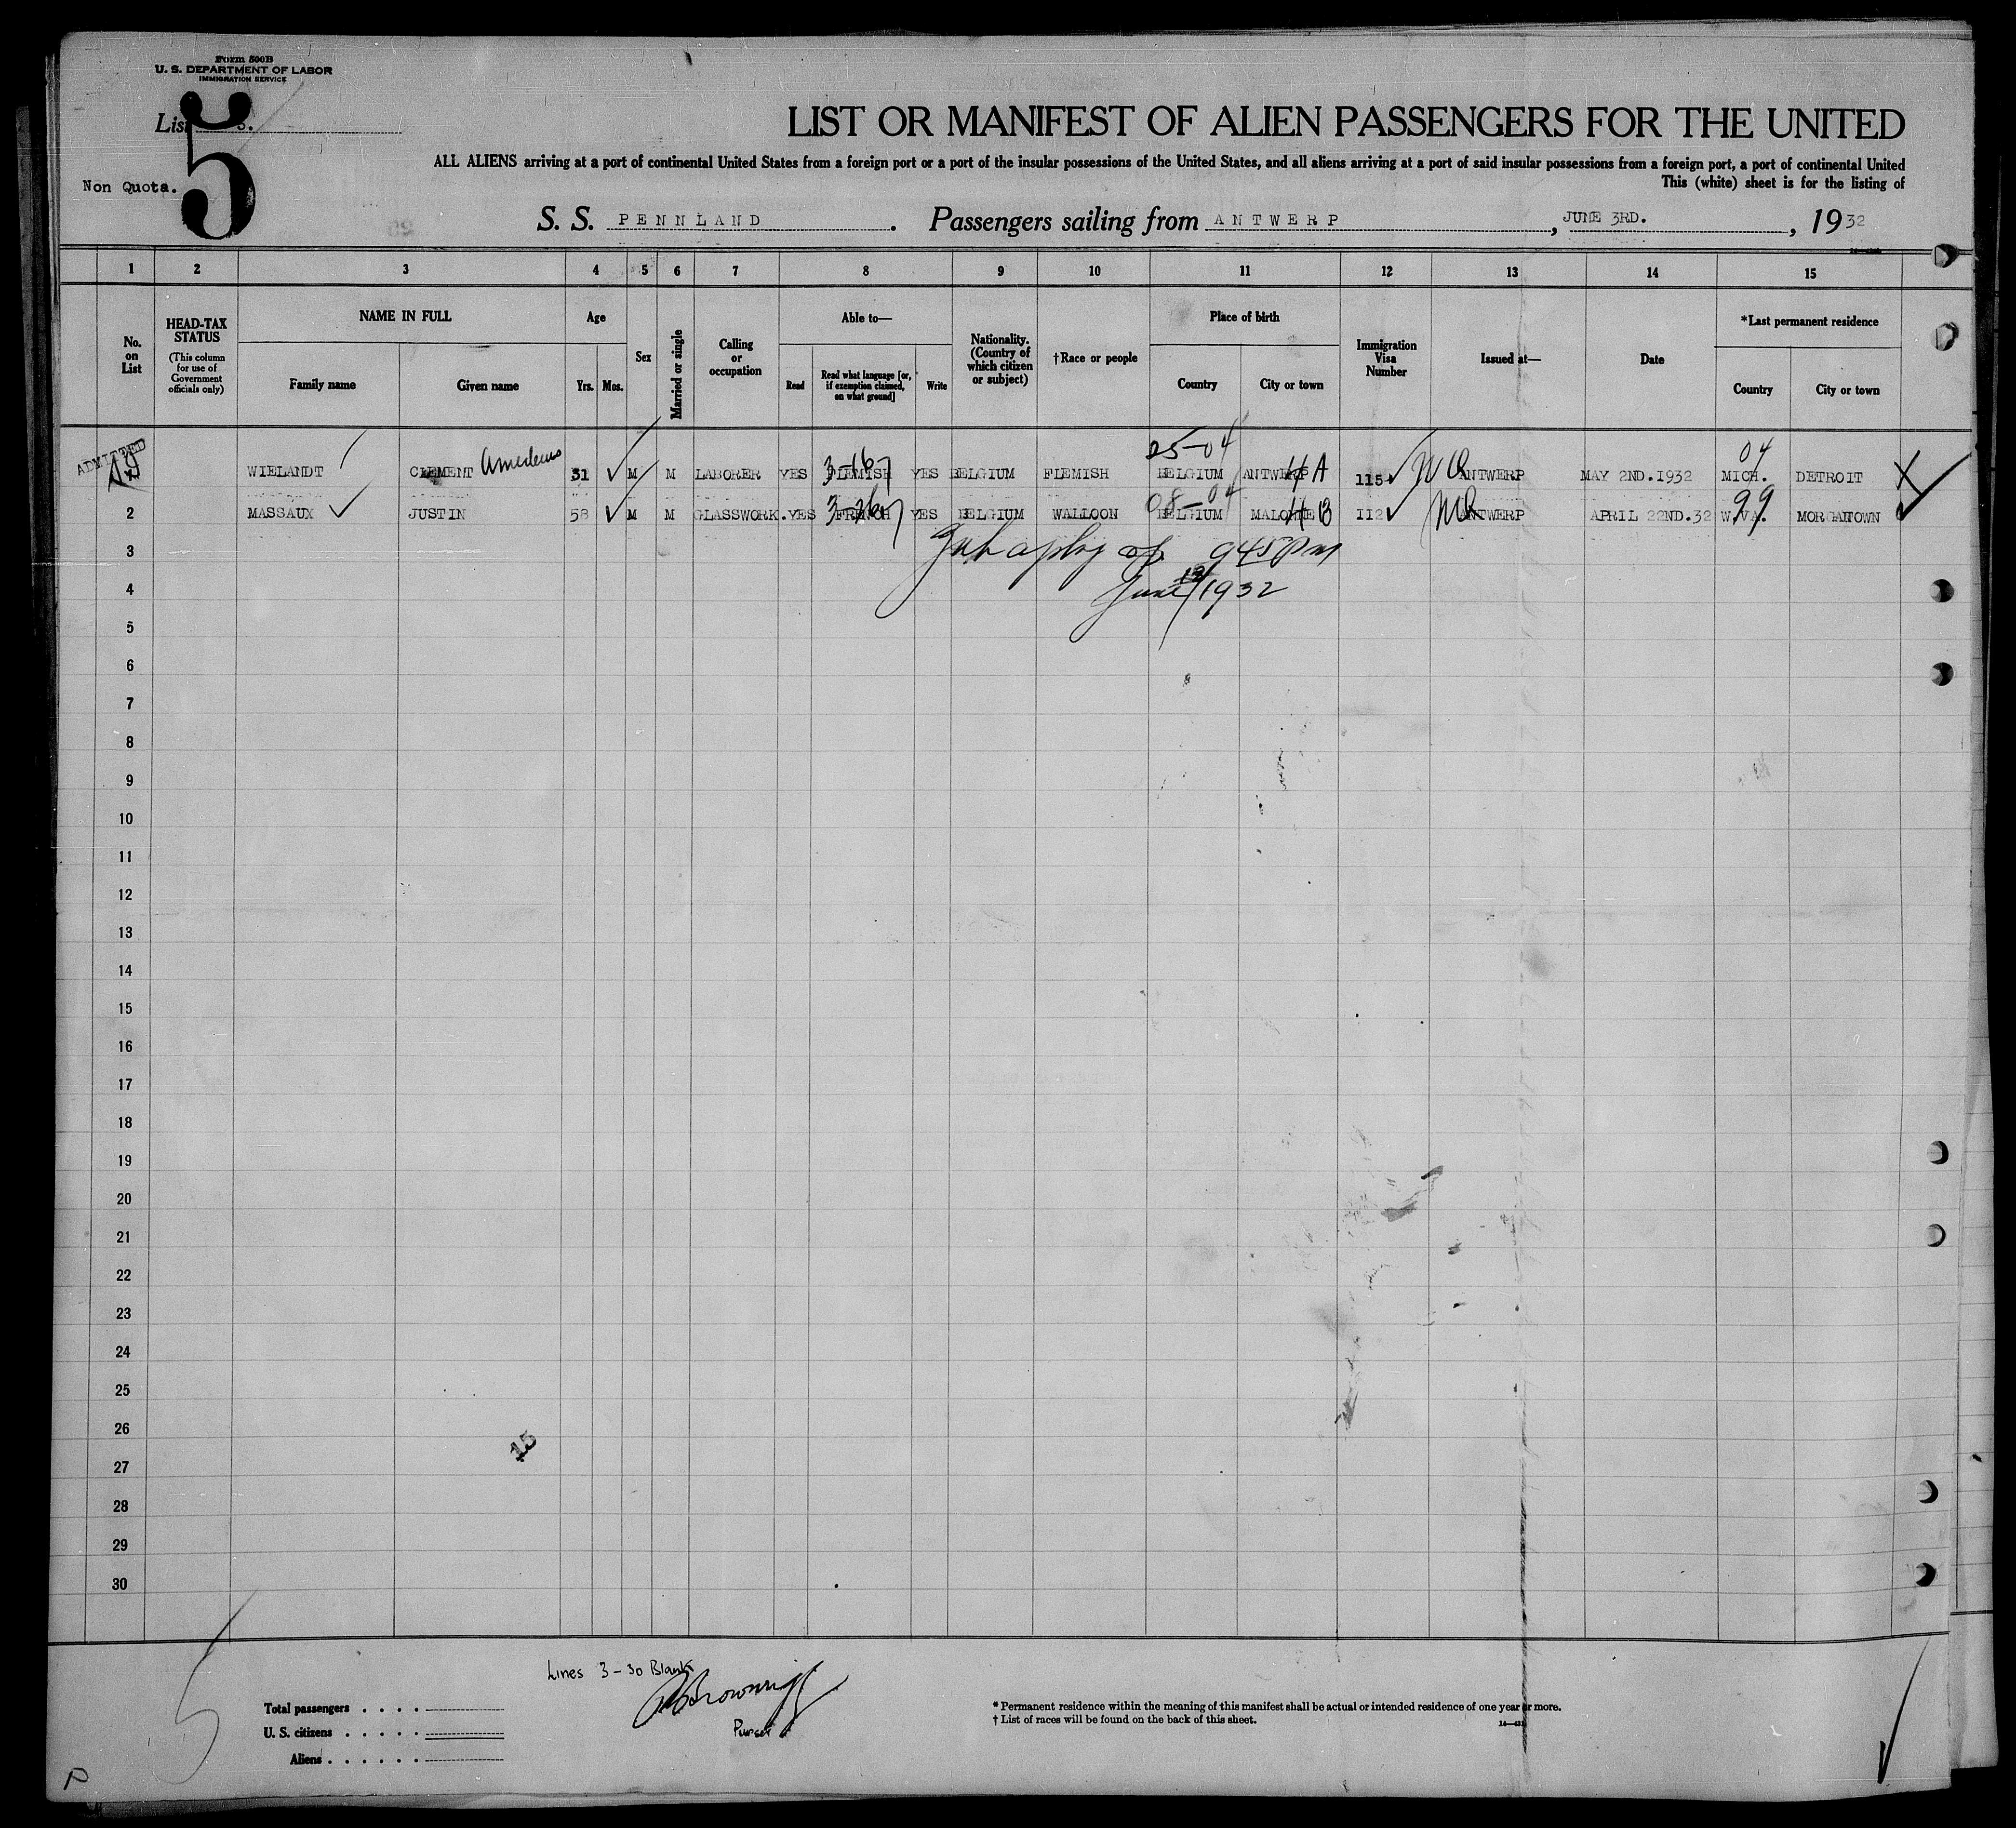 Form 500B
U. S. DEPARTMENT OF LABOR
IMMIGRATION SERVICE
List 5.
5
Non Quota.
LIST OR MANIFEST OF ALIEN PASSENGERS FOR THE UNITED
ALL ALIENS arriving at a port of continental United States from a foreign port or a port of the insular possessions of the United States, and all aliens arriving at a port of said insular possessions from a foreign port, a port of continental United
This (white) sheet is for the listing of
S. S. PENNLAND. Passengers sailing from ANTWERP, JUNE 3RD., 1932
1 2 3 4 5 6 7 8 9 10 11 12 13 14 15
No. on List
HEAD-TAX STATUS (This column for use of Government officials only)
NAME IN FULL
Family name Given name
Age
Yrs. Mos.
Sex
Married or single
Calling or occupation
Able to—
Read Read what language [or, if exemption claimed, on what ground] Write
Nationality. (Country of which citizen or subject)
†Race or people
Place of birth
Country City or town
Immigration Visa Number
Issued at—
Date
*Last permanent residence
Country City or town
25-04 04
ADMITTED WIELANDT CLEMENT Amedeus 31 M M LABORER YES FLEMISH 3-16-7 YES BELGIUM FLEMISH BELGIUM ANTWERP 4A 115 ANTWERP MAY 2ND.1932 MICH. DETROIT
08-04 29
2 MASSAUX JUSTIN 58 M M GLASSWORK. YES FRENCH YES BELGIUM WALLOON BELGIUM 4B 112 ANTWERP APRIL 22ND.32 W.VA. MORGANTOWN
3 945 PM
4 June 13/1932
5
6
7
8
9
10
11
12
13
14
15
16
17
18
19
20
21
22
23
24
25
26
15
27
28
29
30
Lines 3-30 Blank
Purser
Total passengers
U. S. citizens
Aliens
* Permanent residence within the meaning of this manifest shall be actual or intended residence of one year or more.
† List of races will be found on the back of this sheet.